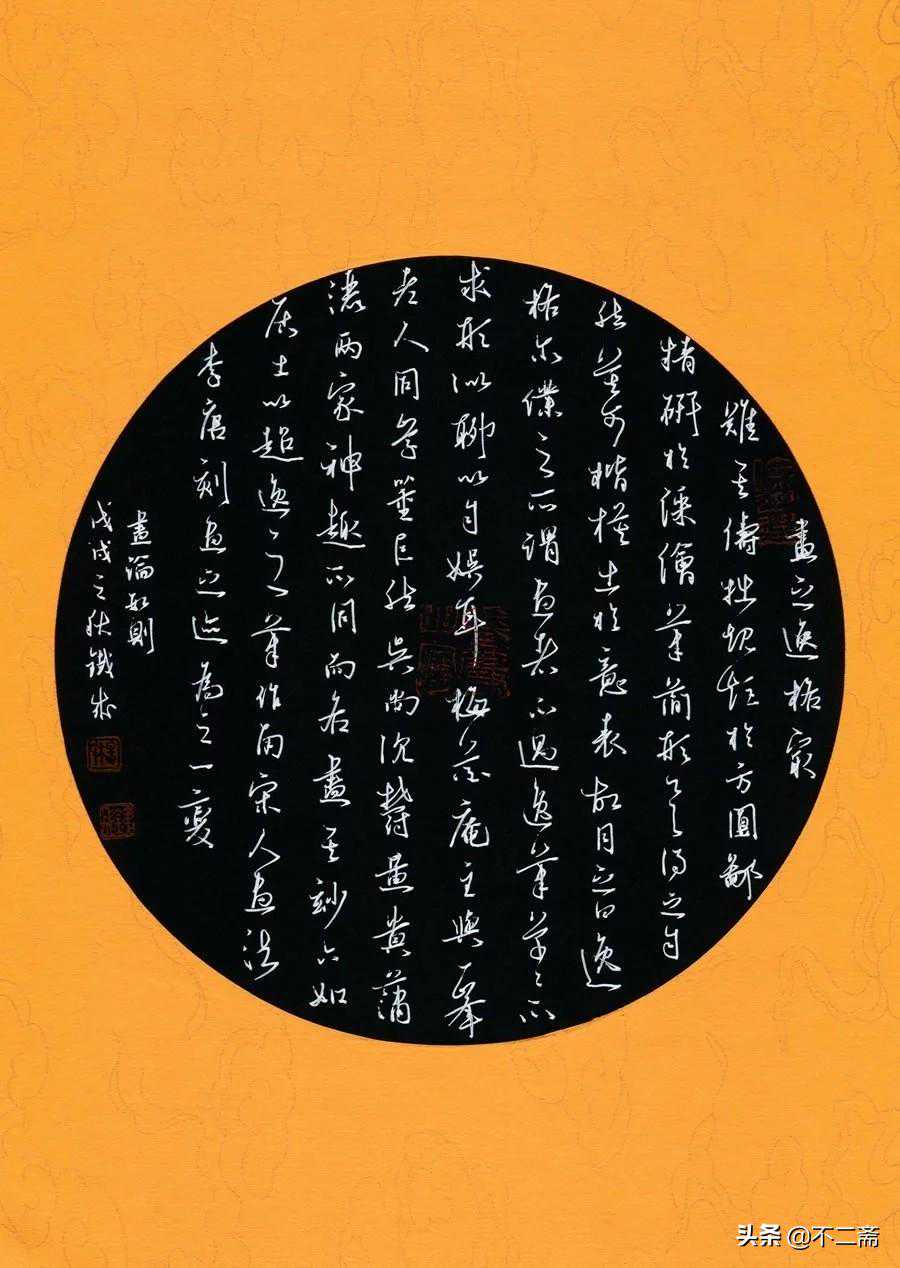 畫之逸格最
難其儔拙規矩於方圓鄙
精研於彩繪筆簡形具得之自
然莫可楷模出於意表故目之曰逸
格尔僕之所謂畫者不過逸筆草々不
求形似聊以自娛耳梅花庵主與一峯
老人同學董巨然吳尚沉鬱黃貴瀟
灑兩家神趣不同而各盡其妙六如
居士以超逸之筆作南宋人畫法
李唐刻畫之跡為之一變
畫論數則
戊戌之秋鐵
头条 @不二斋